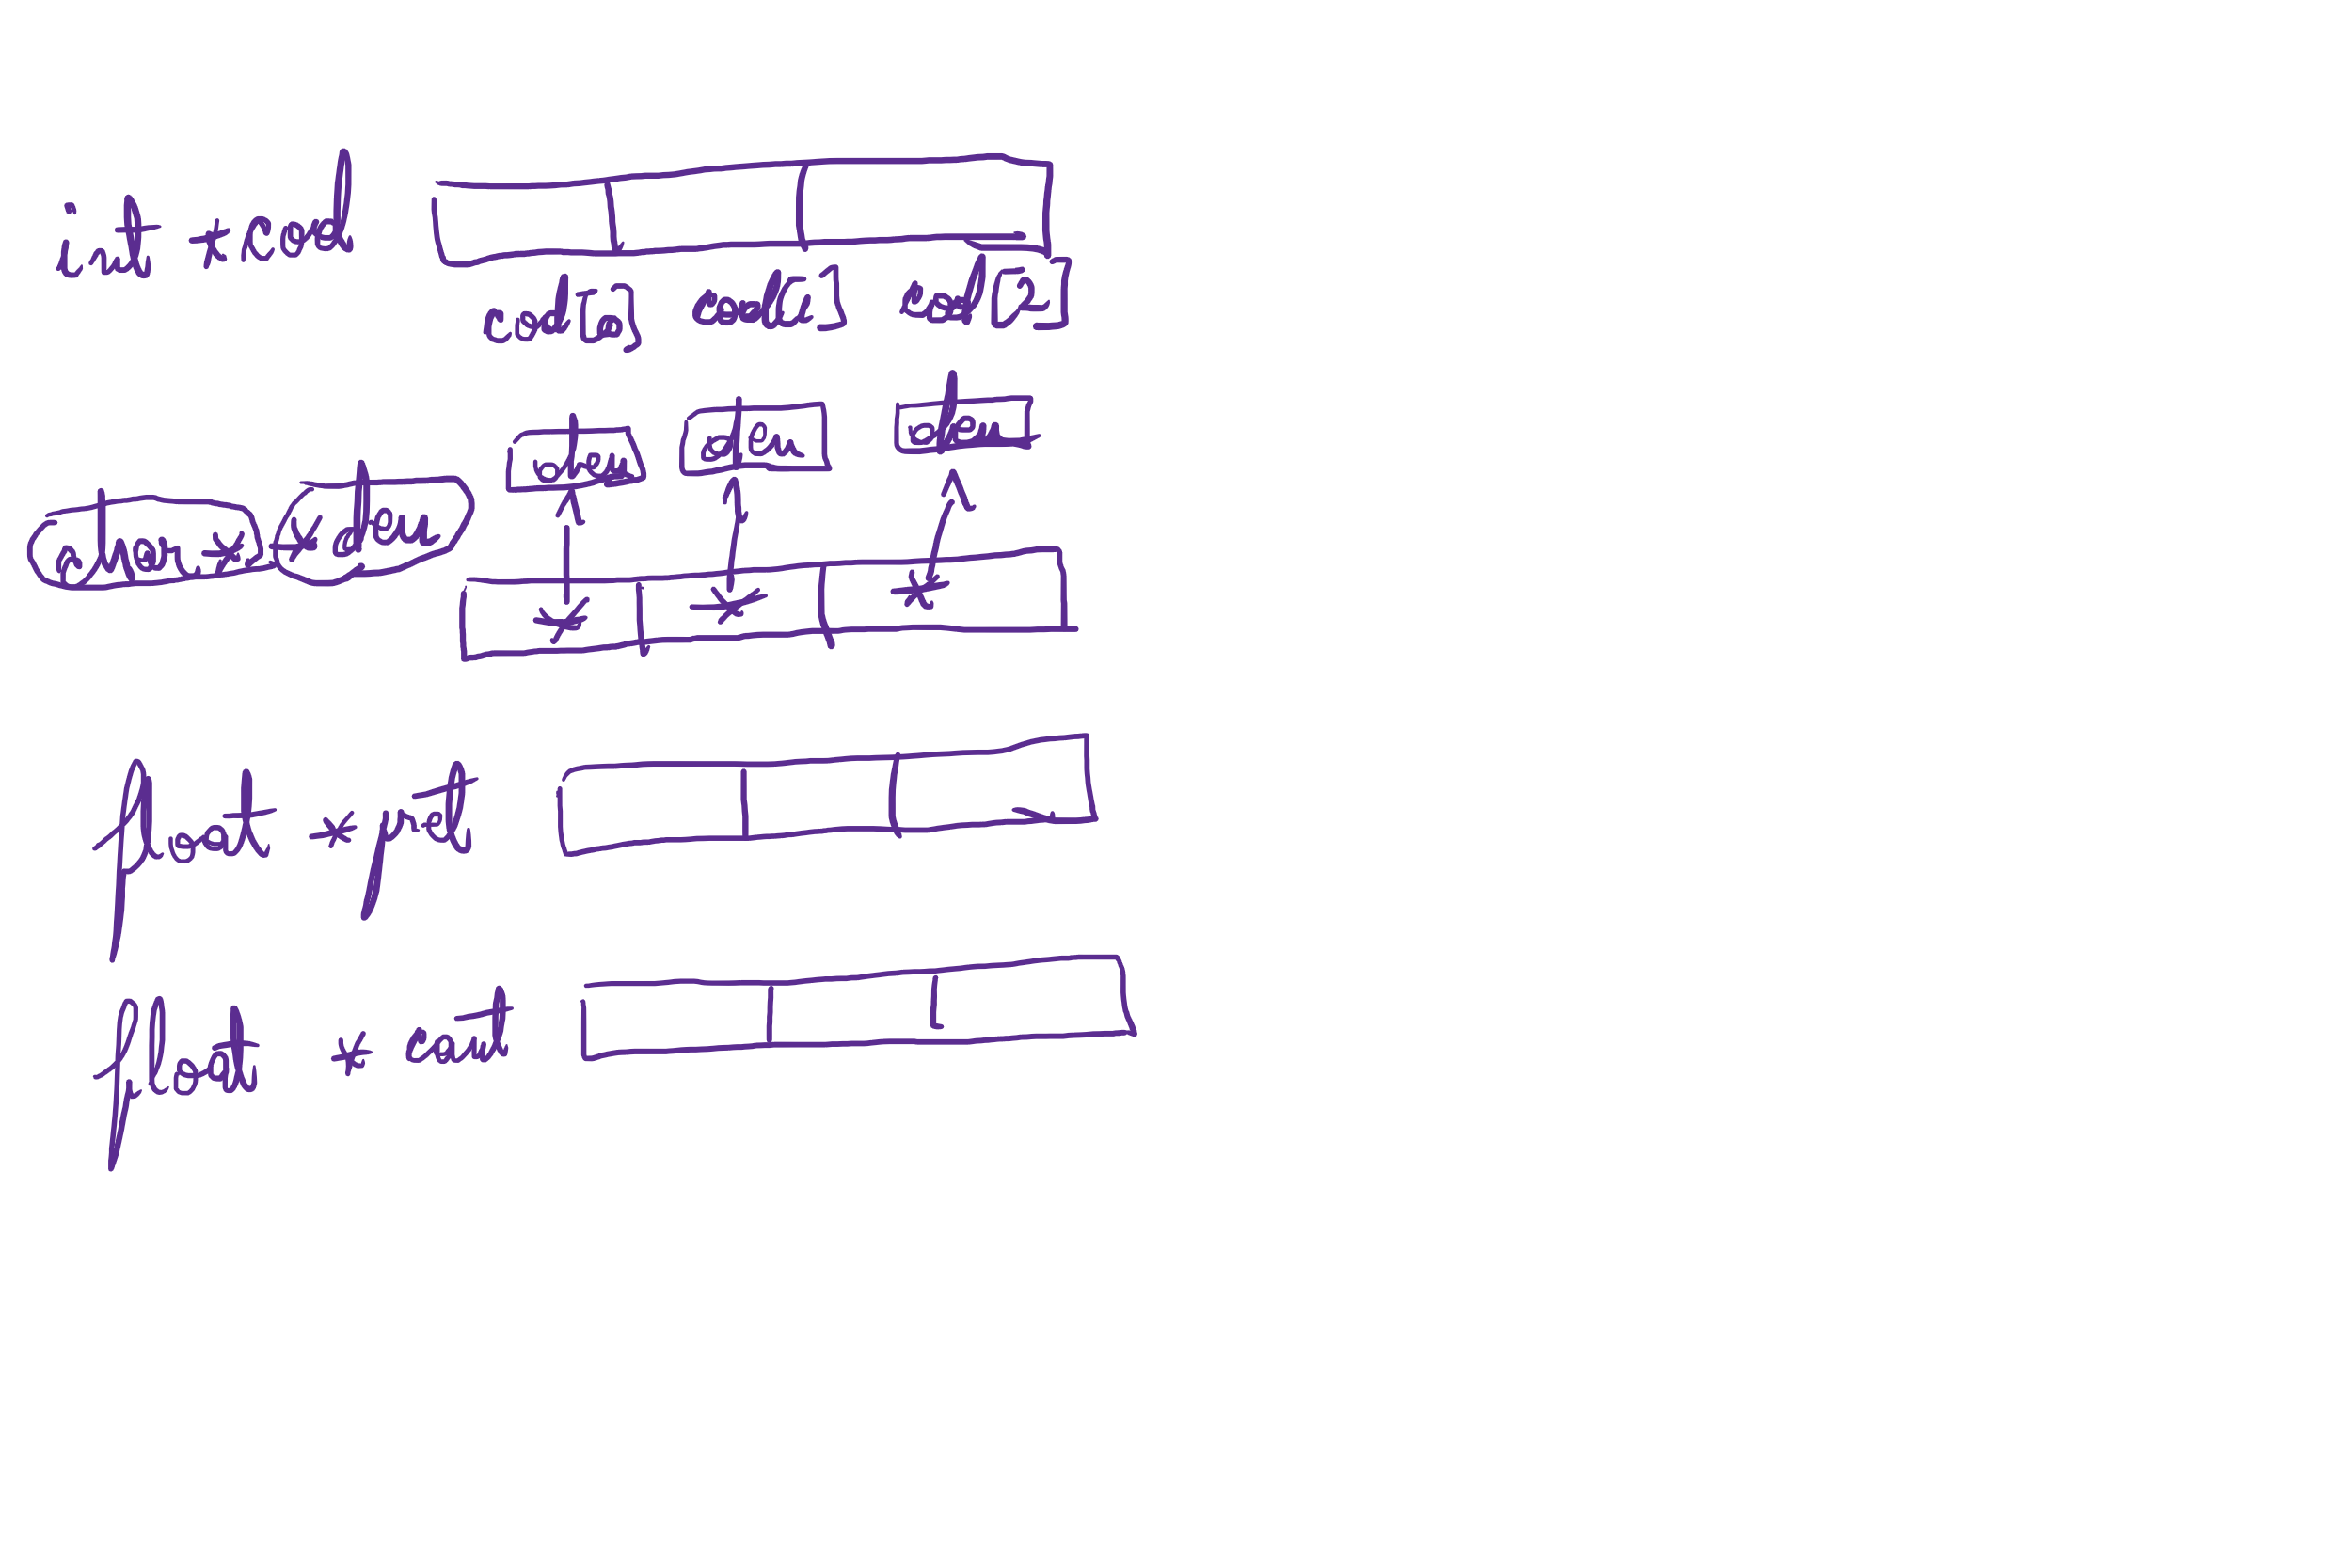 int *cod
cod[0] cod[1] cod[2]
den den den
char* *den
* * *
float *pret
float * cant